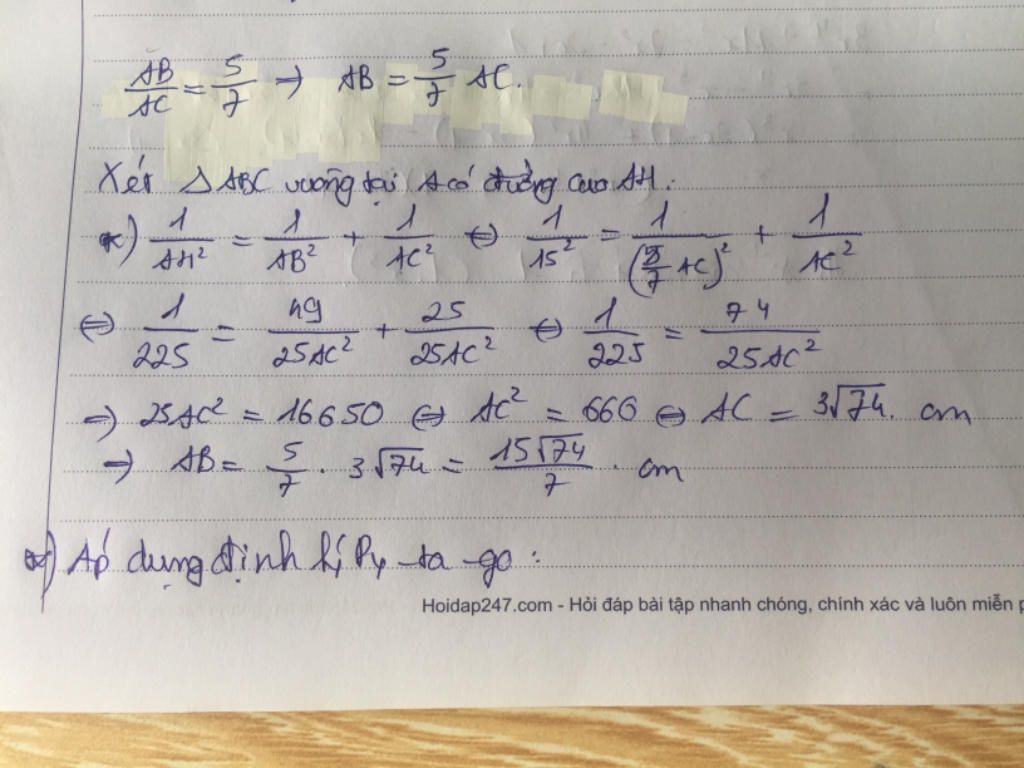 AB/AC = 5/7 → AB = 5/7 AC.
Xét △ ABC vuông tại A có đường cao AH:
*) 1/AH² = 1/AB² + 1/AC² ⇔ 1/15² = 1/(5/7 AC)² + 1/AC²
⇔ 1/225 = 49/25AC² + 25/25AC² ⇔ 1/225 = 74/25AC²
→ 25AC² = 16650 ⇔ AC² = 666 ⇔ AC = 3√74. cm
→ AB = 5/7 . 3√74 = 15√74/7 . cm
*) Áp dụng định lí Py-ta-go:
Hoidap247.com - Hỏi đáp bài tập nhanh chóng, chính xác và luôn miễn p